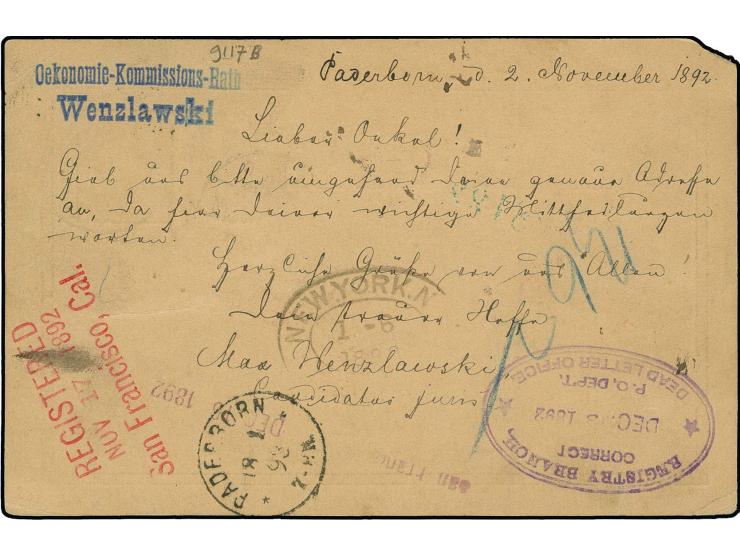 9117 B
Oekonomie-Kommissions-Rath
Wenzlawski
Paderborn, d. 2. November 1892.
Lieber Onkel!
Gieb uns bitte umgehend Deine genaue Adresse
an, da hier Deiner wichtige Mittheilungen
warten.
Herzliche Grüße von uns Allen!
Dein treuer Neffe
Max Wenzlawski
Candidatus juris
REGISTERED
NOV 17 1892
San Francisco, Cal.
NEW YORK, N
1892
PADERBORN
18 1
93
REGISTRY BRANCH,
CORRECT
DEC 1892
P. O. DEPT.
DEAD LETTER OFFICE.
San Fran